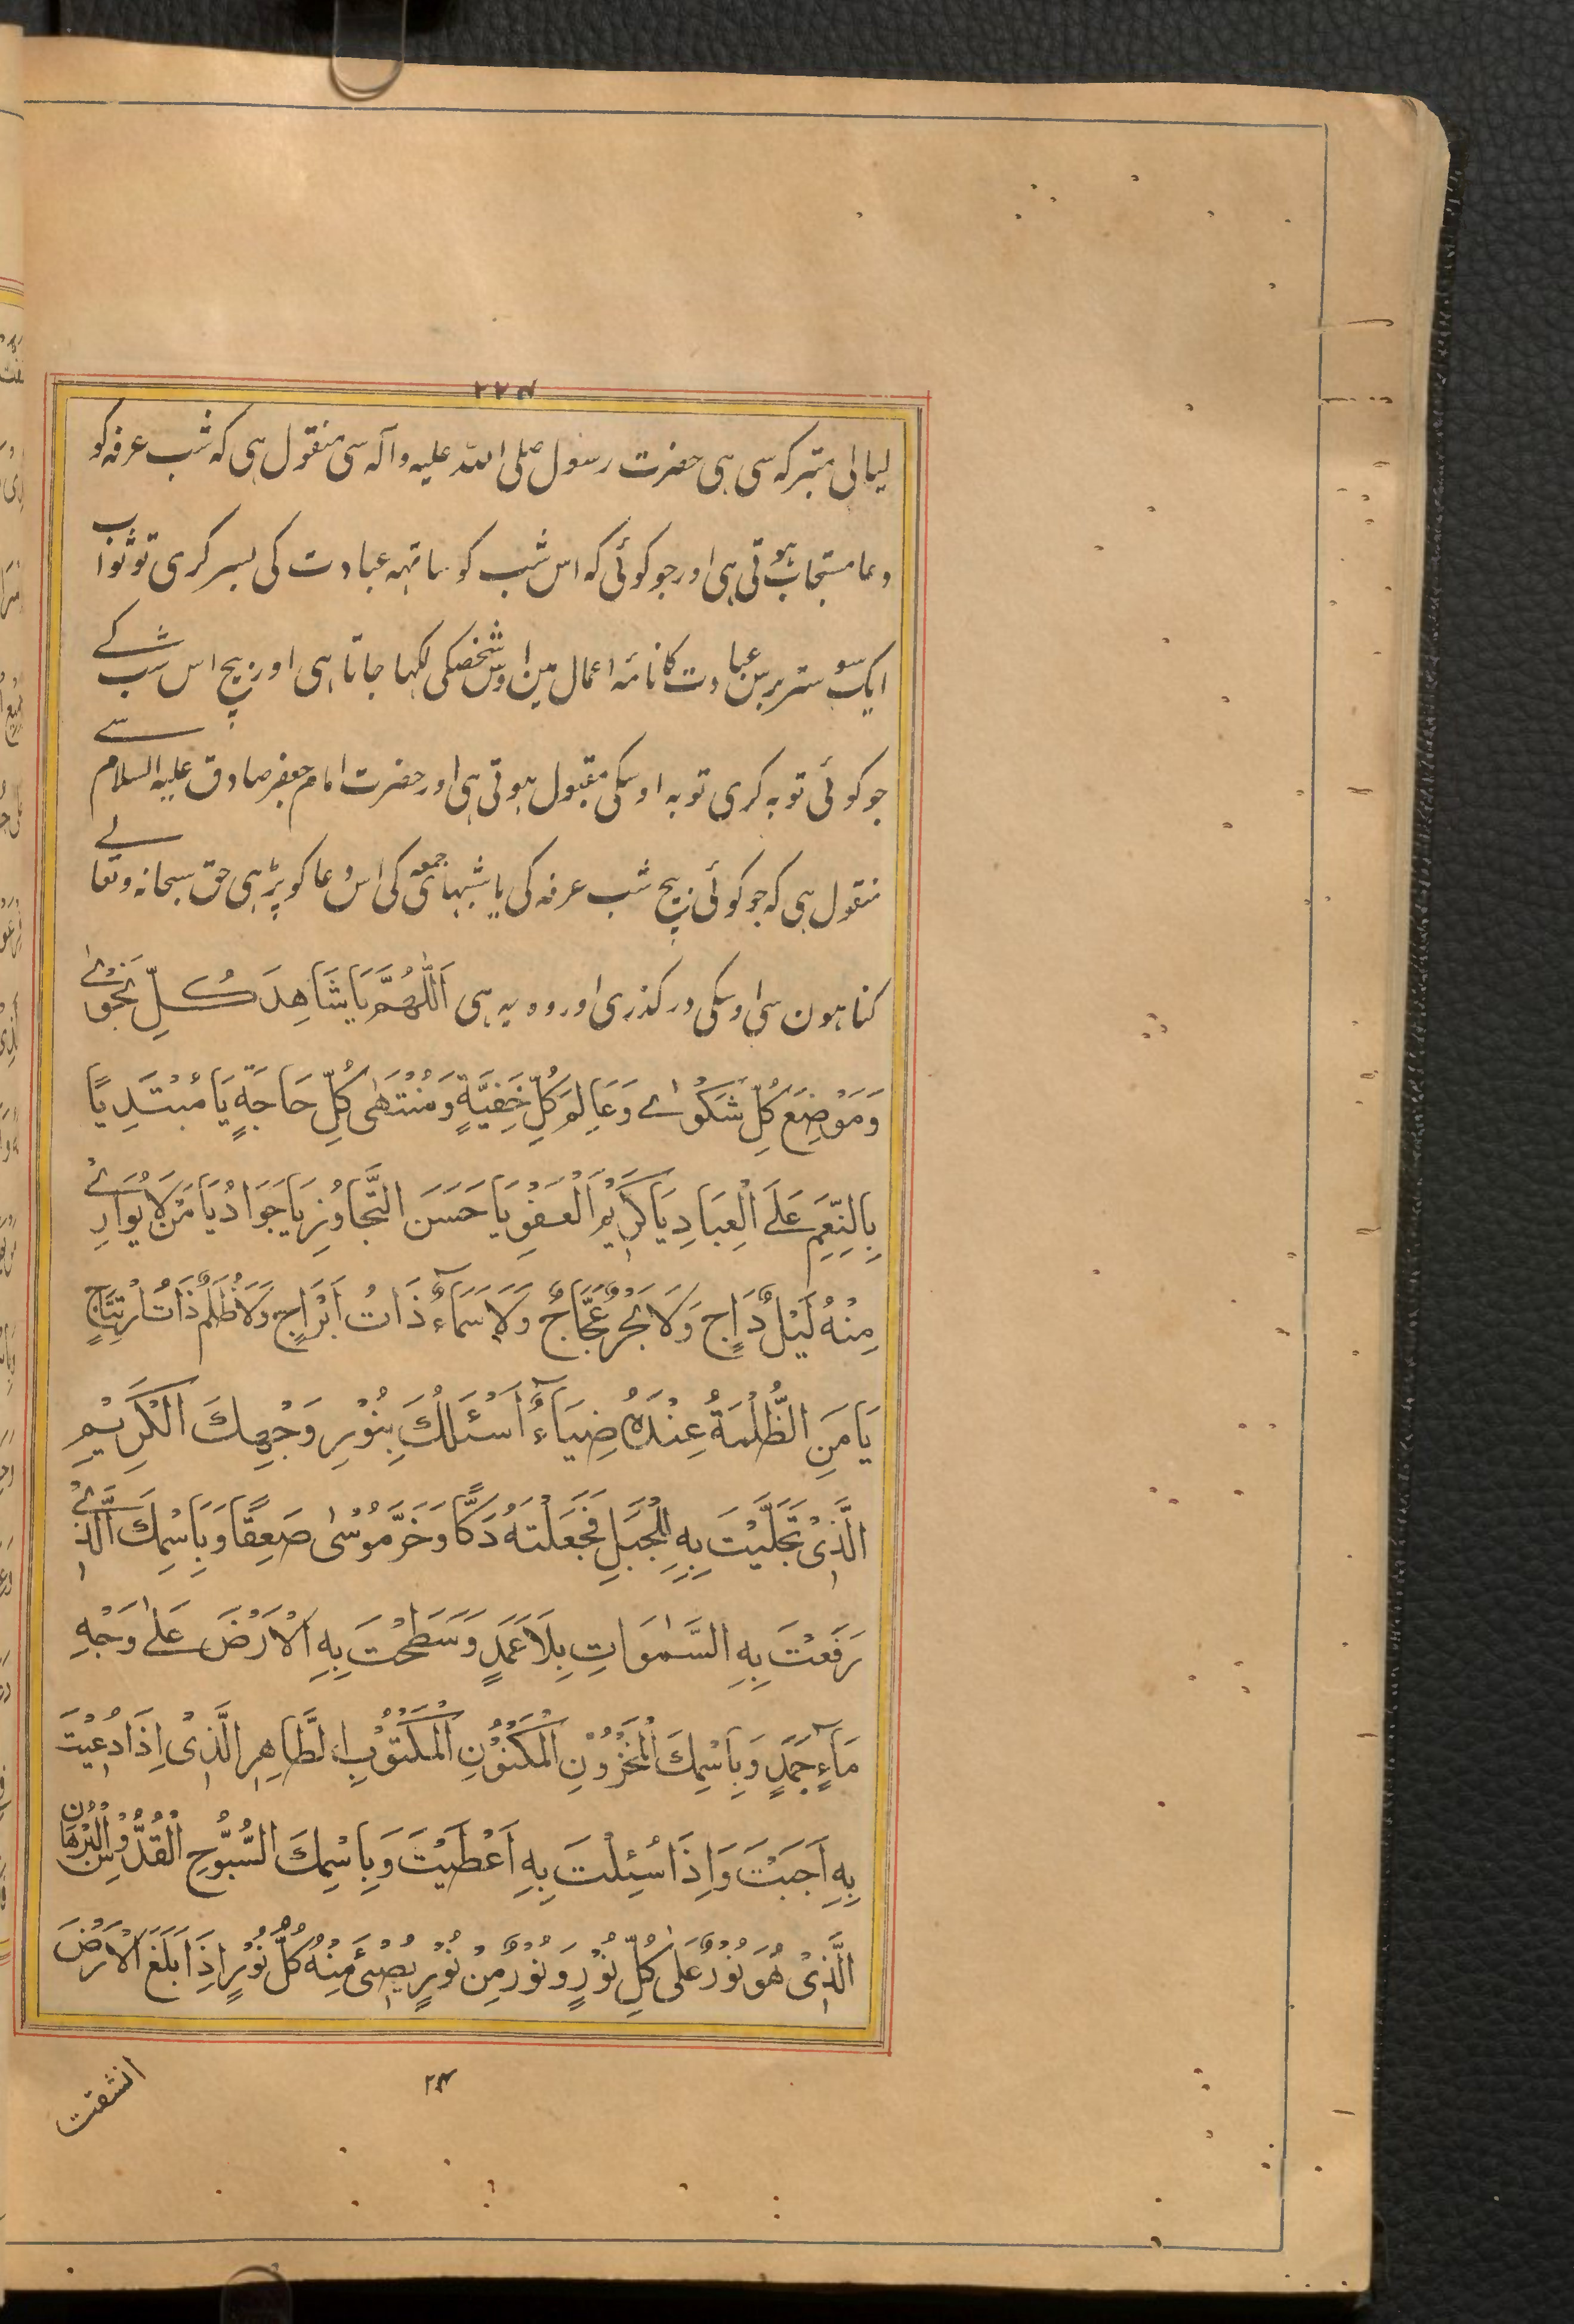 ۲۲۴
لیالی متبرکہ سی ہی حضرت رسول صلی اللہ علیہ وآلہ سی منقول ہی کہ شب عرفہ کو
دعا مستجاب ہوتی ہی اور جو کوئی کہ اس شب کو ساتہہ عبادت کی بسر کری تو ثواب
ایک سو ستر برس عبادت کا نامۂ اعمال مین اوس شخصکی لکہا جاتا ہی اور بیچ اس شب کے
جو کوئی توبہ کری توبہ اوسکی مقبول ہوتی ہی اور حضرت امام جعفر صادق علیہ السلام سے
منقول ہی کہ جو کوئی بیچ شب عرفہ کی یا شبہای جمعہ کی اس دعا کو پڑہی حق سبحانہ وتعالے
کناہون سی اوسکی درکذری اور وہ یہ ہی اَللّٰهُمَّ يَا شَاهِدَ كُلِّ نَجْوٰے
وَمَوْضِعَ كُلِّ شَكْوٰے وَعَالِمَ كُلِّ خَفِيَّةٍ وَمُنْتَهٰى كُلِّ حَاجَةٍ يَا مُبْتَدِيًا
بِالنِّعَمِ عَلَى الْعِبَادِ يَا كَرِيْمَ الْعَفْوِ يَا حَسَنَ التَّجَاوُزِ يَا جَوَادُ يَا مَنْ لَا يُوَارِے
مِنْهُ لَيْلٌ دَاجٍ وَلَا بَحْرٌ عَجَّاجٌ وَلَا سَمَآءٌ ذَاتُ اَبْرَاجٍ وَلَا ظُلَمٌ ذَاتُ ارْتِتَاجٍ
يَا مَنِ الظُّلْمَةُ عِنْدَهُ ضِيَآءٌ اَسْئَلُكَ بِنُوْرِ وَجْهِكَ الْكَرِيْمِ
الَّذِيْ تَجَلَّيْتَ بِهِ لِلْجَبَلِ فَجَعَلْتَهُ دَكًّا وَخَرَّ مُوْسٰى صَعِقًا وَبِاسْمِكَ الَّذِے
رَفَعْتَ بِهِ السَّمٰوَاتِ بِلَا عَمَدٍ وَسَطَحْتَ بِهِ الْاَرْضَ عَلٰى وَجْهِ
مَآءٍ جَمَدٍ وَبِاسْمِكَ الْمَخْزُوْنِ الْمَكْنُوْنِ الْمَكْتُوْبِ الطَّاهِرِ الَّذِيْ اِذَا دُعِيْتَ
بِهِ اَجَبْتَ وَاِذَا سُئِلْتَ بِهِ اَعْطَيْتَ وَبِاسْمِكَ السُّبُّوْحِ الْقُدُّوْسِ الْبُرْهَانِ
الَّذِيْ هُوَ نُوْرٌ عَلٰى كُلِّ نُوْرٍ وَنُوْرٌ مِنْ نُوْرٍ يُضِيْئُ مِنْهُ كُلُّ نُوْرٍ اِذَا بَلَغَ الْاَرْضَ
انشقت